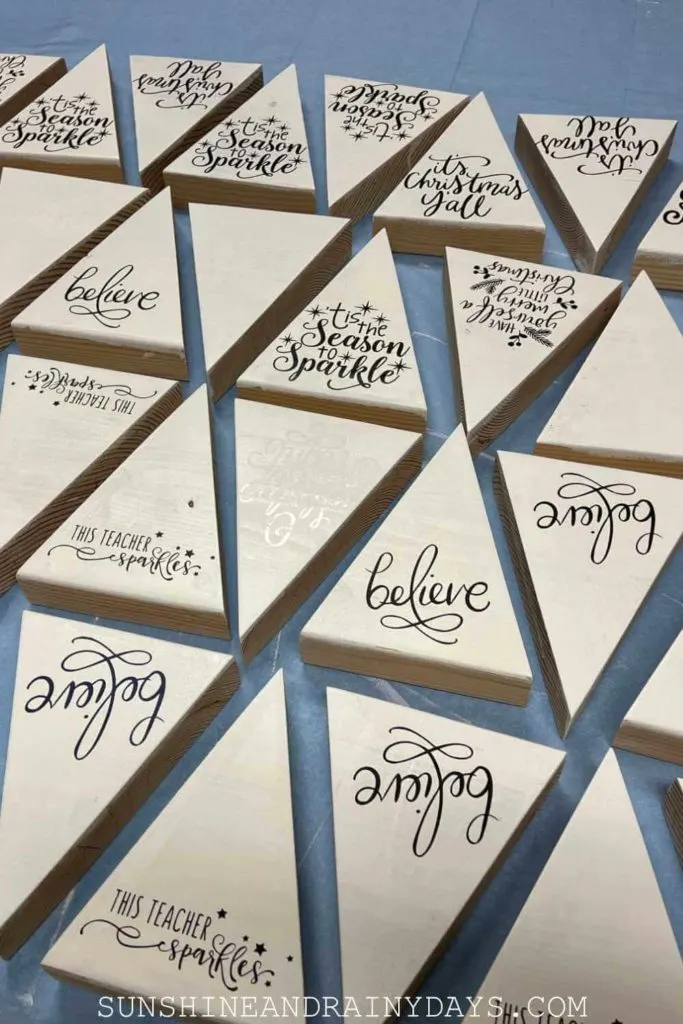 'tis the
Season
to
Sparkle
it's
Christmas
y'all
'tis the
Season
to
Sparkle
'tis the
Season
to
Sparkle
it's
Christmas
y'all
it's
Christmas
y'all
believe
'tis the
Season
to
Sparkle
HAVE
yourself a
merry
LITTLE
Christmas
THIS TEACHER
sparkles.
THIS TEACHER
sparkles.
believe
believe
believe
THIS TEACHER
sparkles.
believe
THIS TEACHER
SUNSHINEANDRAINYDAYS.COM